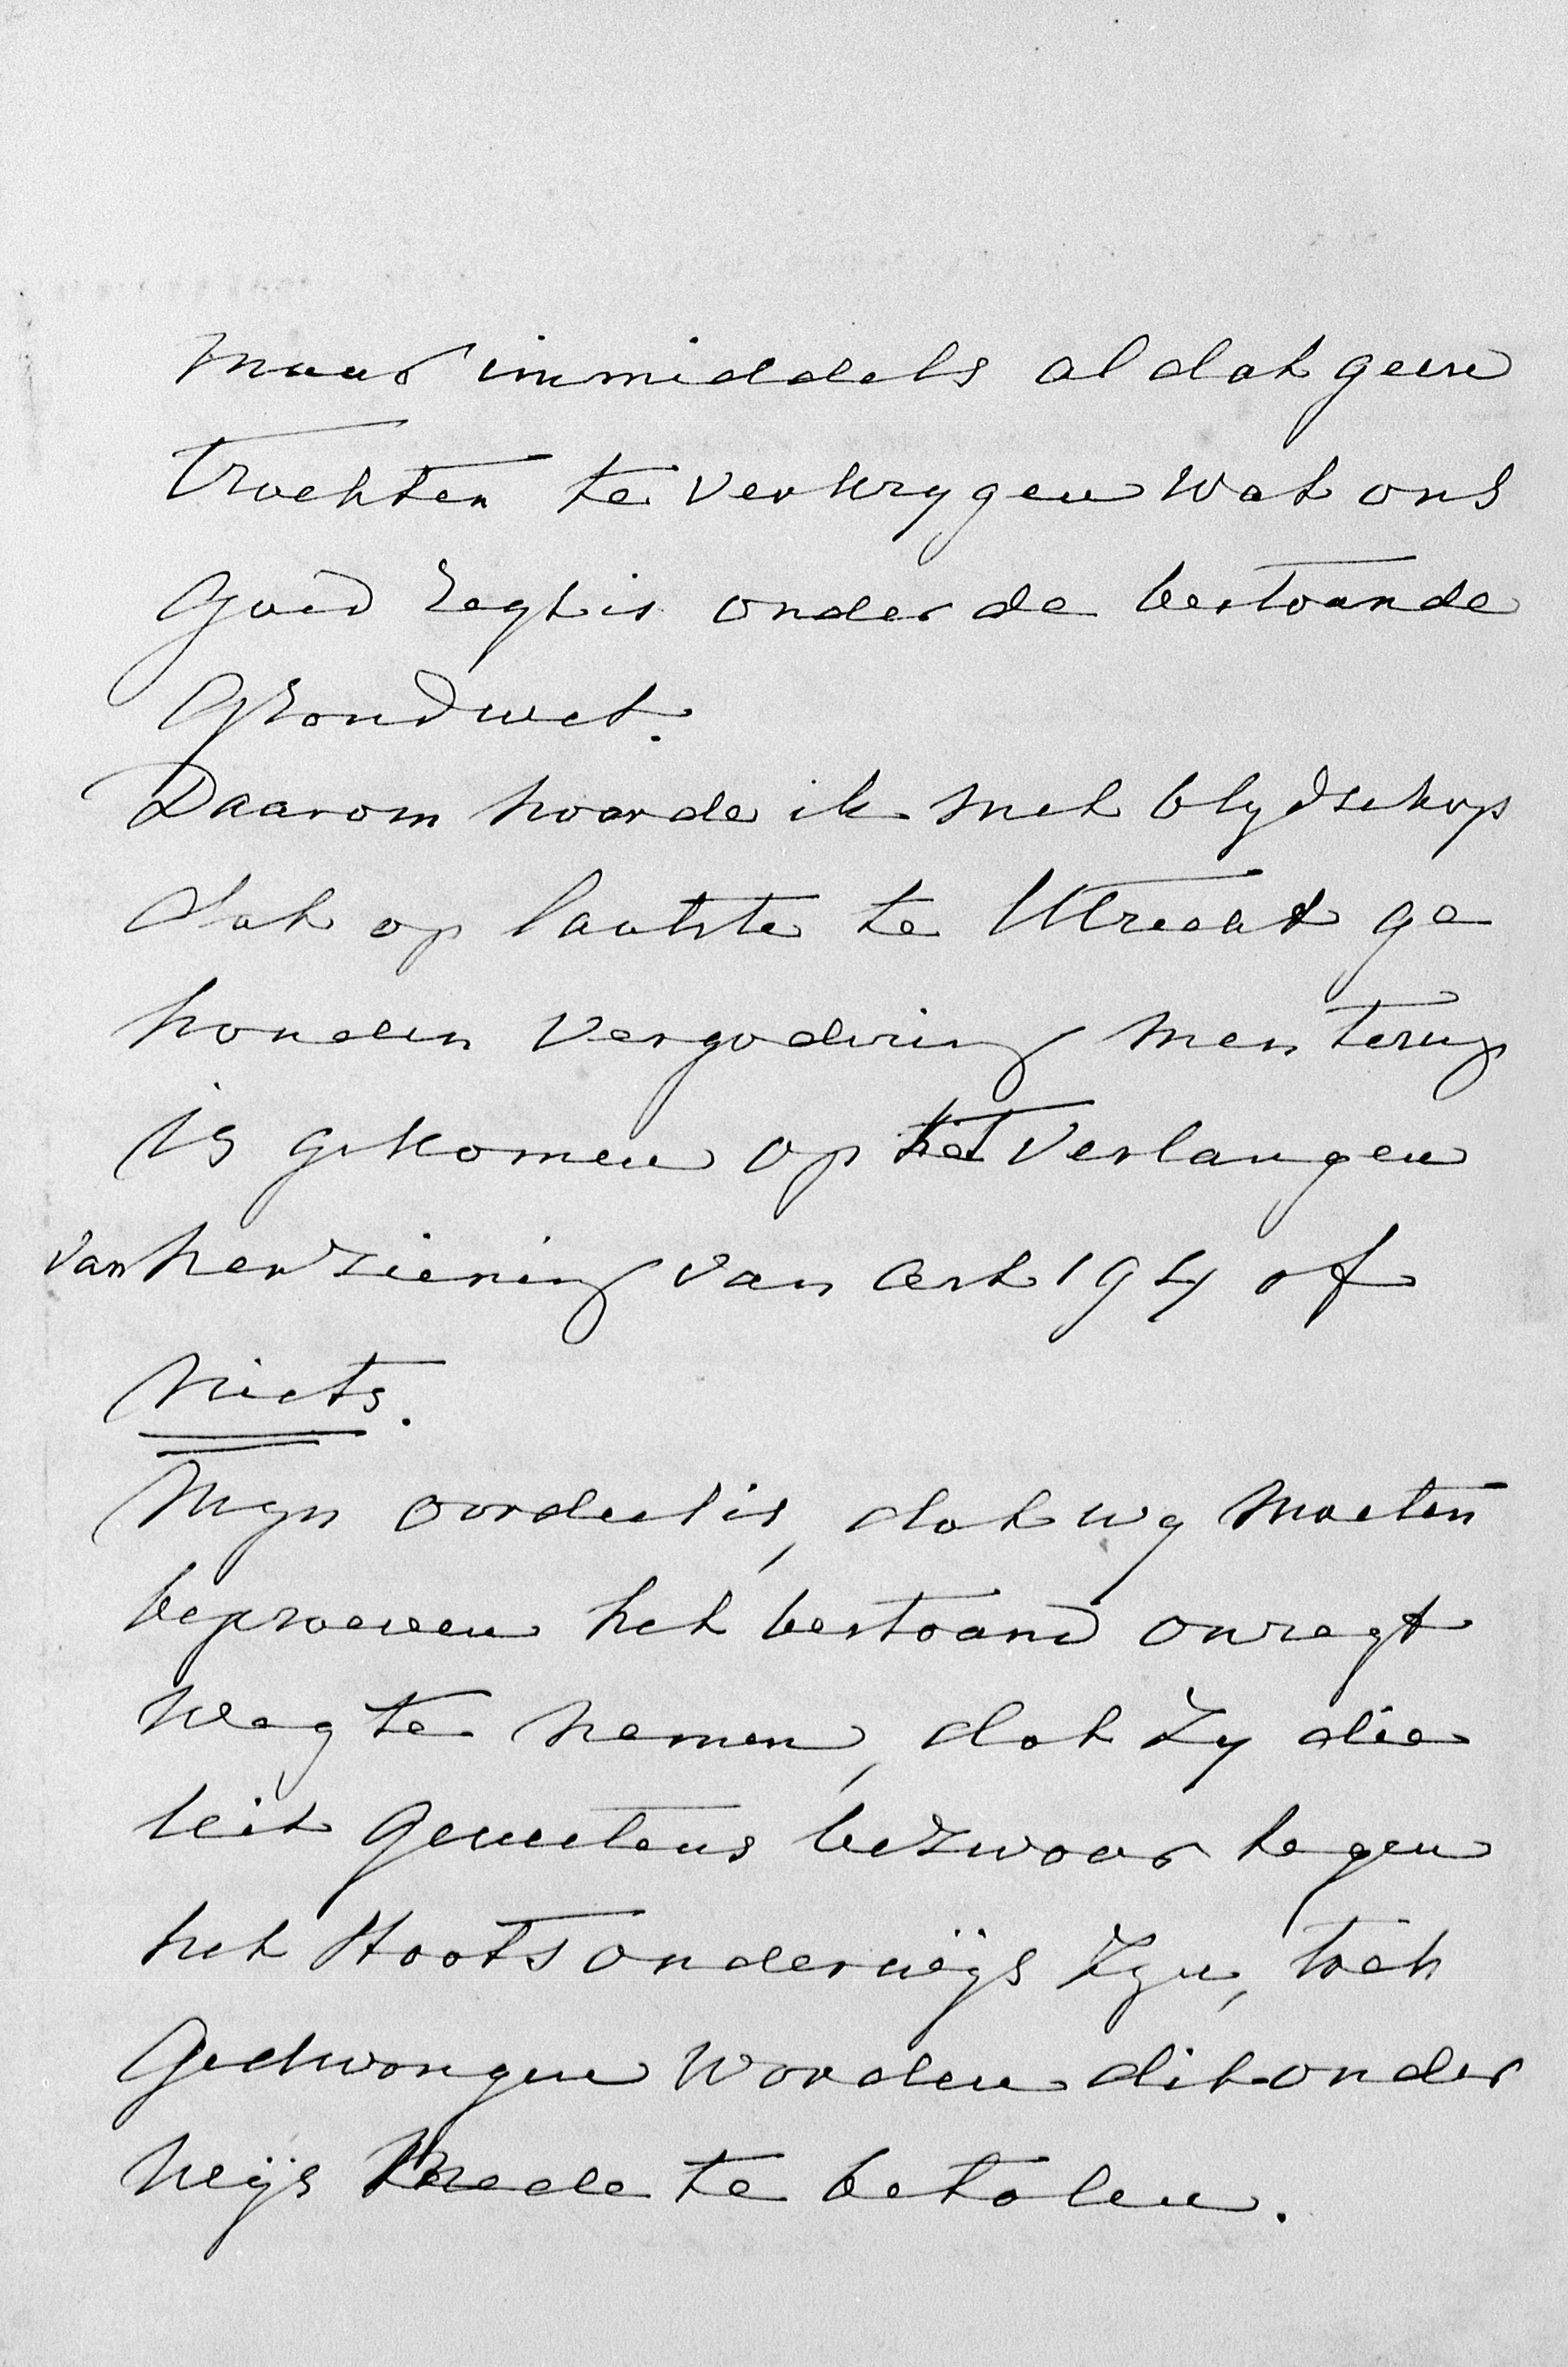 maar inmiddels al dat geen
trachten te verkrygen wat ons
goed regt is onder de bestaande
Grondwet.
Daarom hoorde ik met blydschap
dat op laatste te Utrecht ge
houden vergadering men terug
is gekomen op het verlangen
van herziening van art 194 of
niets.
Myn oordeel is, dat wy moeten
beproeven het bestaand onregt
weg te nemen, dat zy die
uit gewetens bezwaar tegen
het Staatsonderwijs zyn, toch
gedwongen worden dit onder
wijs mede te betalen.